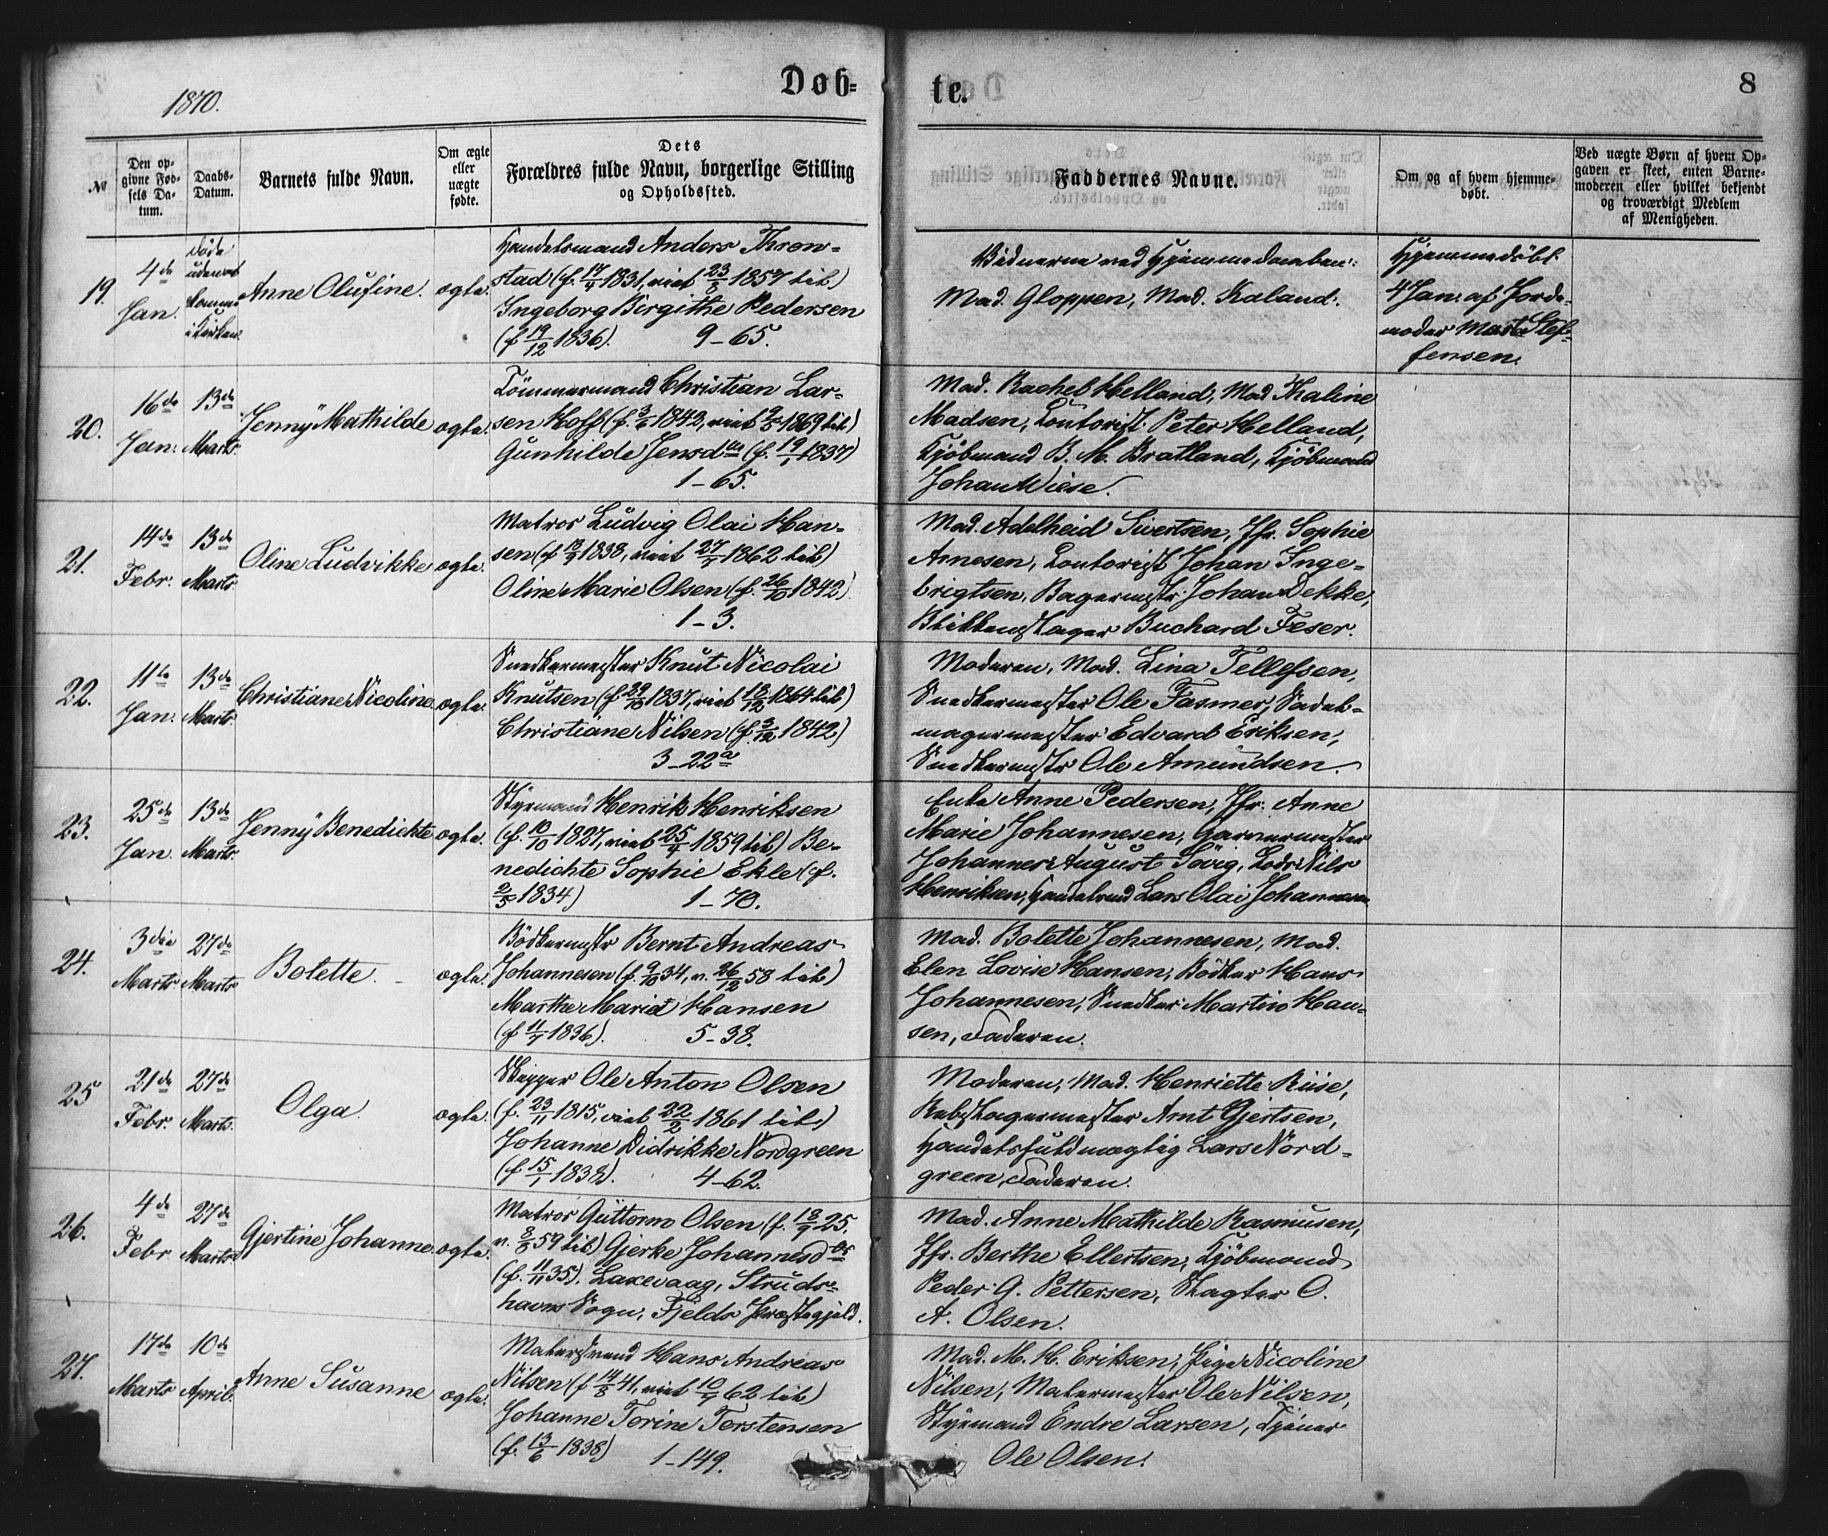 1870.
Døb-
te.
8
№
Den op-
givne Fød-
sels Da-
tum.
Daabs-
Datum.
Barnets fulde Navn.
Om ægte
eller
uægte
fødte.
Dets
Forældres fulde Navn, borgerlige Stilling
og Opholdssted.
Faddernes Navne.
Om og af hvem hjemme-
døbt.
Ved uægte Børn af hvem Op-
gaven er skeet, enten Barne-
moderen eller hvilket bekjendt
og troværdigt Medlem
af Menigheden.
19.
4de
Jan.
Døde
uden at
komme
i Kirken.
Anne Olufine.
ægte.
Handelsmand Anders Thron-
stad (f. 14/4 1831, viet 23/5 1857 til)
Ingeborg Birgithe Pedersen
(f 19/12 1836). 9-65.
Vidnerne ved Hjemmedaaben:
Mad. Gloppen, Mad. Kaland.
Hjemmedøbt
4 Jan. af Jorde-
moder Marta Stef-
fensen.
20.
16de
Jan.
13de
Marts.
Jenny Mathilde
ægte.
Tømmermand Christian Lar-
sen Hoff (f. 3/6 1842, viet 9/5 1869 til)
Gunhilde Jensdtr (f. 19/1 1837)
1-65.
Mad. Rachel Helland, Mad Thaline
Madsen, Contorist Peter Helland,
Kjøbmand B. M. Bratland, Kjøbmand
Johan Wiese.
21.
14de
Febr.
13de
Marts
Oline Ludvikke
ægte.
Matros Ludvig Olai Han-
sen (f. 13/9 1838, viet 27/7 1862 til)
Oline Marie Olsen (f. 26/10 1842).
1-3.
Mad. Adelheid Sivertsen, Jfr. Sophie
Arnesen, Contorist Johan Inge-
brigtsen, Bagermstr. Johan Dekke,
Blikkenslager Buchard Feser.
22.
11te
Jan.
13de
Marts.
Christiane Nicoline.
ægte.
Snedkermester Knut Nicolai
Knutsen (f. 29/10 1837, viet 18/12 1864 til)
Christiane Nilsen (f. 3/12 1842)
3-22a
Moderen, Mad. Lina Tellefsen,
Snedkermester Ole Fasmer, Sadel-
magermester Edvard Eriksen,
Snedkermstr Ole Amundsen.
23.
25de
Jan.
13de
Marts.
Jenny Benedickte
ægte.
Styrmand Henrik Henriksen
(f. 10/10 1827, viet 25/4 1859 til) Be-
nedichte Sophie Ekle (f.
2/5 1834) 1-70.
Enke Anne Pedersen, Jfr. Anne
Marie Johannesen, Garvermester
Johannes August Søvig, Lods Nils
Henriksen, Handelsmd Lars Olai Johannesen
24.
3die
Marts
27de
Marts
Bolette.
ægte.
Bødkermstr Bernt Andreas
Johannesen (f. 9/10 34, v. 26/12 58 til)
Marthe Marie Hansen
(f 11/7 1836). 5-38.
Mad. Bolette Johannesen, Mad.
Elen Lovise Hansen, Bødker Hans
Johannesen, Snedker Martin Han-
sen, Faderen.
25
21de
Febr.
27de
Marts.
Olga.
ægte.
Skipper Ole Anton Olsen
(f. 23/11 1815, viet 22/2 1861 til)
Johanne Didrikke Nordgreen
(f. 15/1 1838). 4-62.
Moderen, Mad. Henriette Riise,
Rebslagermester Arnt Gjertsen,
Handelsfuldmægtig Lars Nord-
green, Faderen.
26.
4de
Febr.
27de
Marts
Gjertine Johanne.
ægte.
Matros Guttorm Olsen (f. 18/9 25.
v. 8/5 59 til) Gjerke Johannesdtr
(f. 11/11 35). Laxevaag, Struds-
havns Sogn, Fjelds Præstegjeld.
Mad. Anne Mathilde Rasmusen,
Jfr. Berthe Ellertsen, Kjøbmand
Peder G. Pettersen, Slagter O.
A. Olsen.
27.
17de
Marts
10de
April.
Anne Susanne
ægte.
Malersvend Hans Andreas
Nilsen (f 14/3 41, viet 10/7 62 til)
Johanne Torine Torstensen
(f. 13/6 1838) 1-149.
Mad. M. H. Eriksen, Pige Nicoline
Nilsen, Malermester Ole Nilsen,
Styrmand Endre Larsen, Tjener
Ole Olsen.